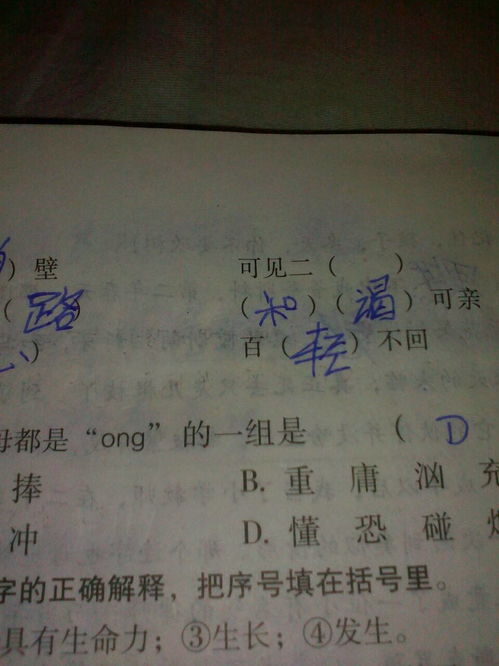 ）壁 可见二（ ）
（路 （和）（渴）可亲
心） 百（轻）不回
母都是“ong”的一组是 （D
捧 B. 重 庸 汹 充
冲 D. 懂 恐 碰
字的正确解释，把序号填在括号里。
具有生命力；③生长；④发生。